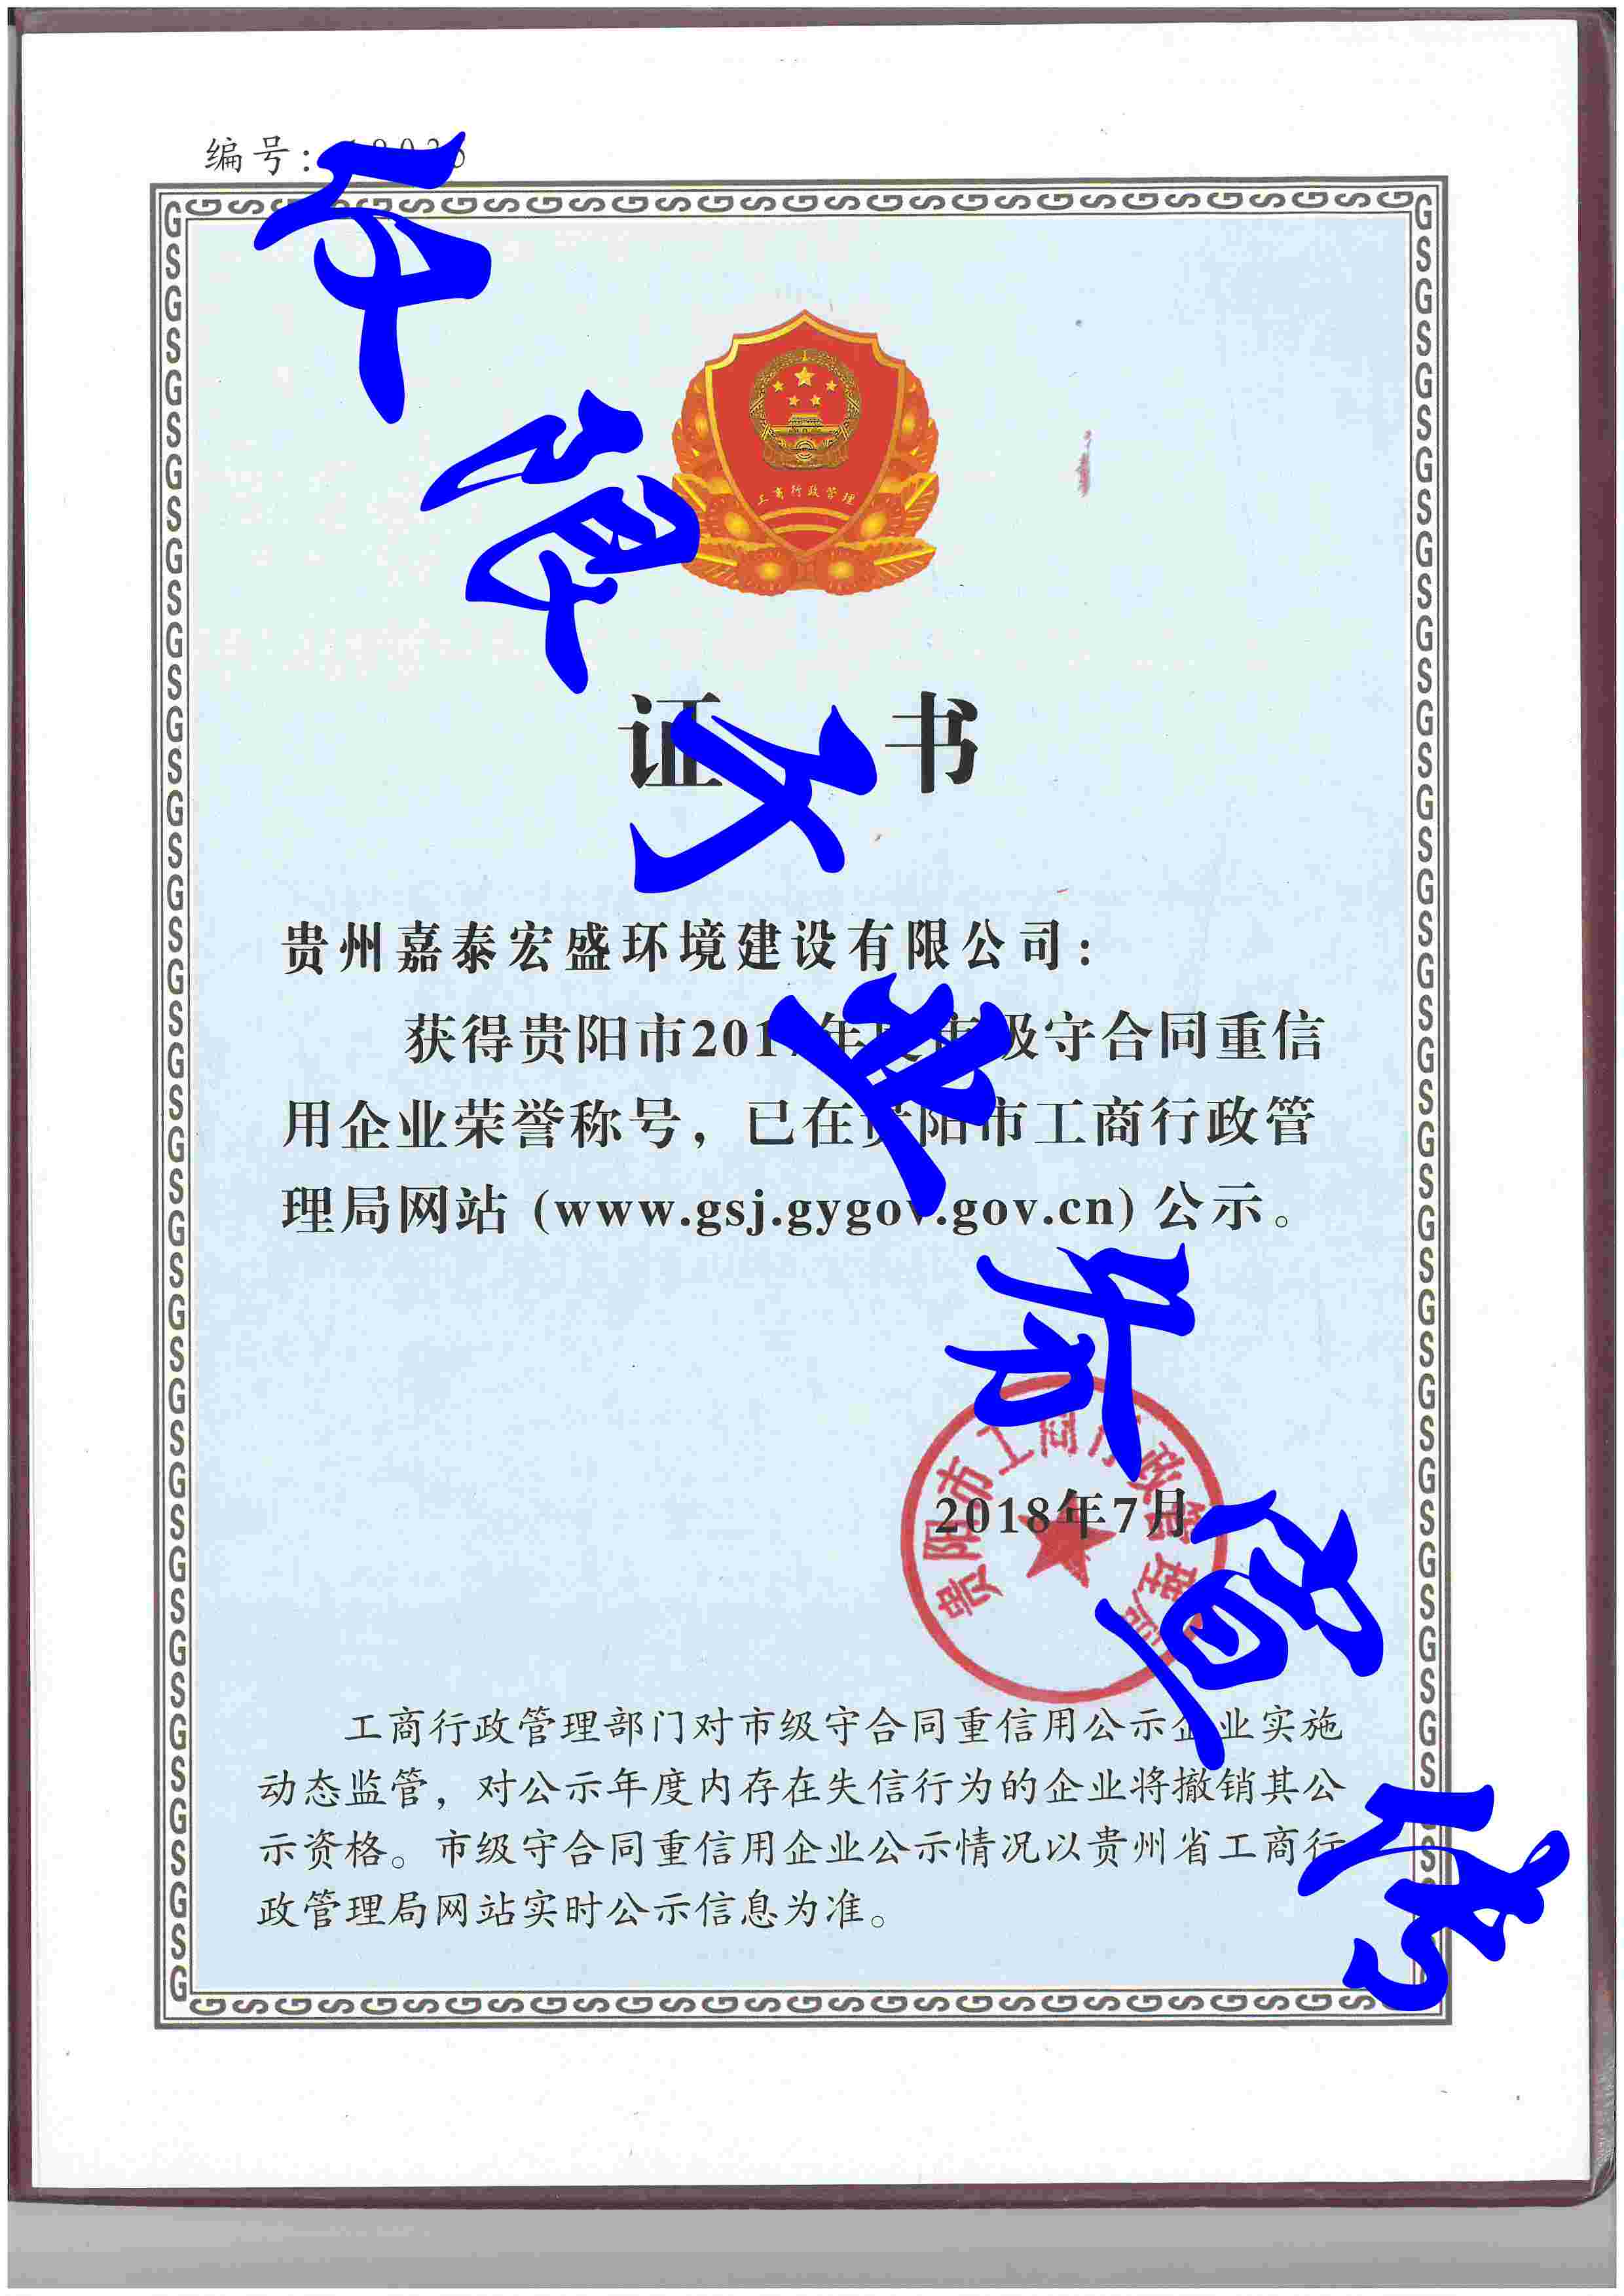 编号:
工商行政管理
证书
贵州嘉泰宏盛环境建设有限公司：
获得贵阳市2017年度市级守合同重信
用企业荣誉称号，已在贵阳市工商行政管
理局网站 (www.gsj.gygov.gov.cn) 公示。
贵阳市工商行政管理局
2018年7月
工商行政管理部门对市级守合同重信用公示企业实施
动态监管，对公示年度内存在失信行为的企业将撤销其公
示资格。市级守合同重信用企业公示情况以贵州省工商行
政管理局网站实时公示信息为准。
仅限于业务宣传